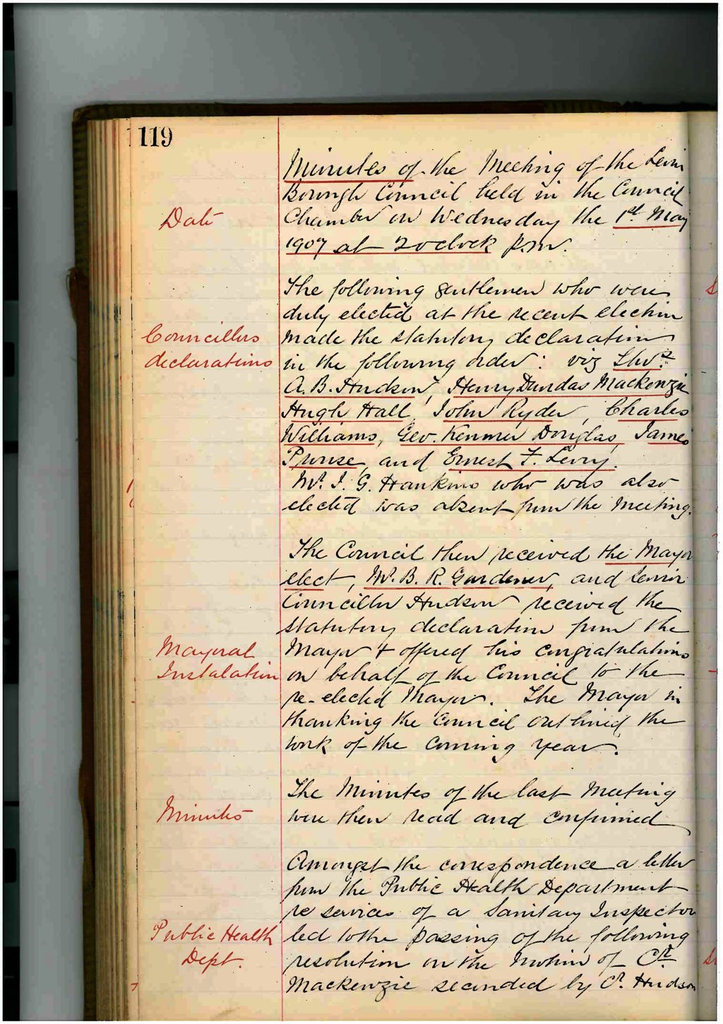 119
Minutes of the Meeting of the Levin
Borough Council held in the Council
Date
Chamber on Wednesday the 1st May
1907 at 2 oclock p.m.
The following gentlemen who were
duly elected at the recent election
Councillors
made the statutory declaration
declarations
in the following order: viz
A. B. Hudson, Henry Dundas Mackenzie
Hugh Hall, John Ryder, Charles
Williams, Geo. Kenmer Douglas, James
Prouse, and Ernest F. Levy.
Mr. J. G. Hankins who was also
elected was absent from the meeting.
The Council then received the Mayor
elect, Mr. B. R. Gardener, and Senior
Councillor Hudson received the
statutory declaration from the
Mayoral
Mayor & offered his congratulations
Instalation
on behalf of the Council to the
re-elected Mayor. The Mayor in
thanking the Council outlined the
work of the coming year.
The Minutes of the last Meeting
Minutes
were then read and confirmed
Amongst the correspondence a letter
from the Public Health Department
re services of a Sanitary Inspector
Public Health
led to the passing of the following
Dept.
resolution on the motion of Cr.
Mackenzie seconded by Cr. Hudson